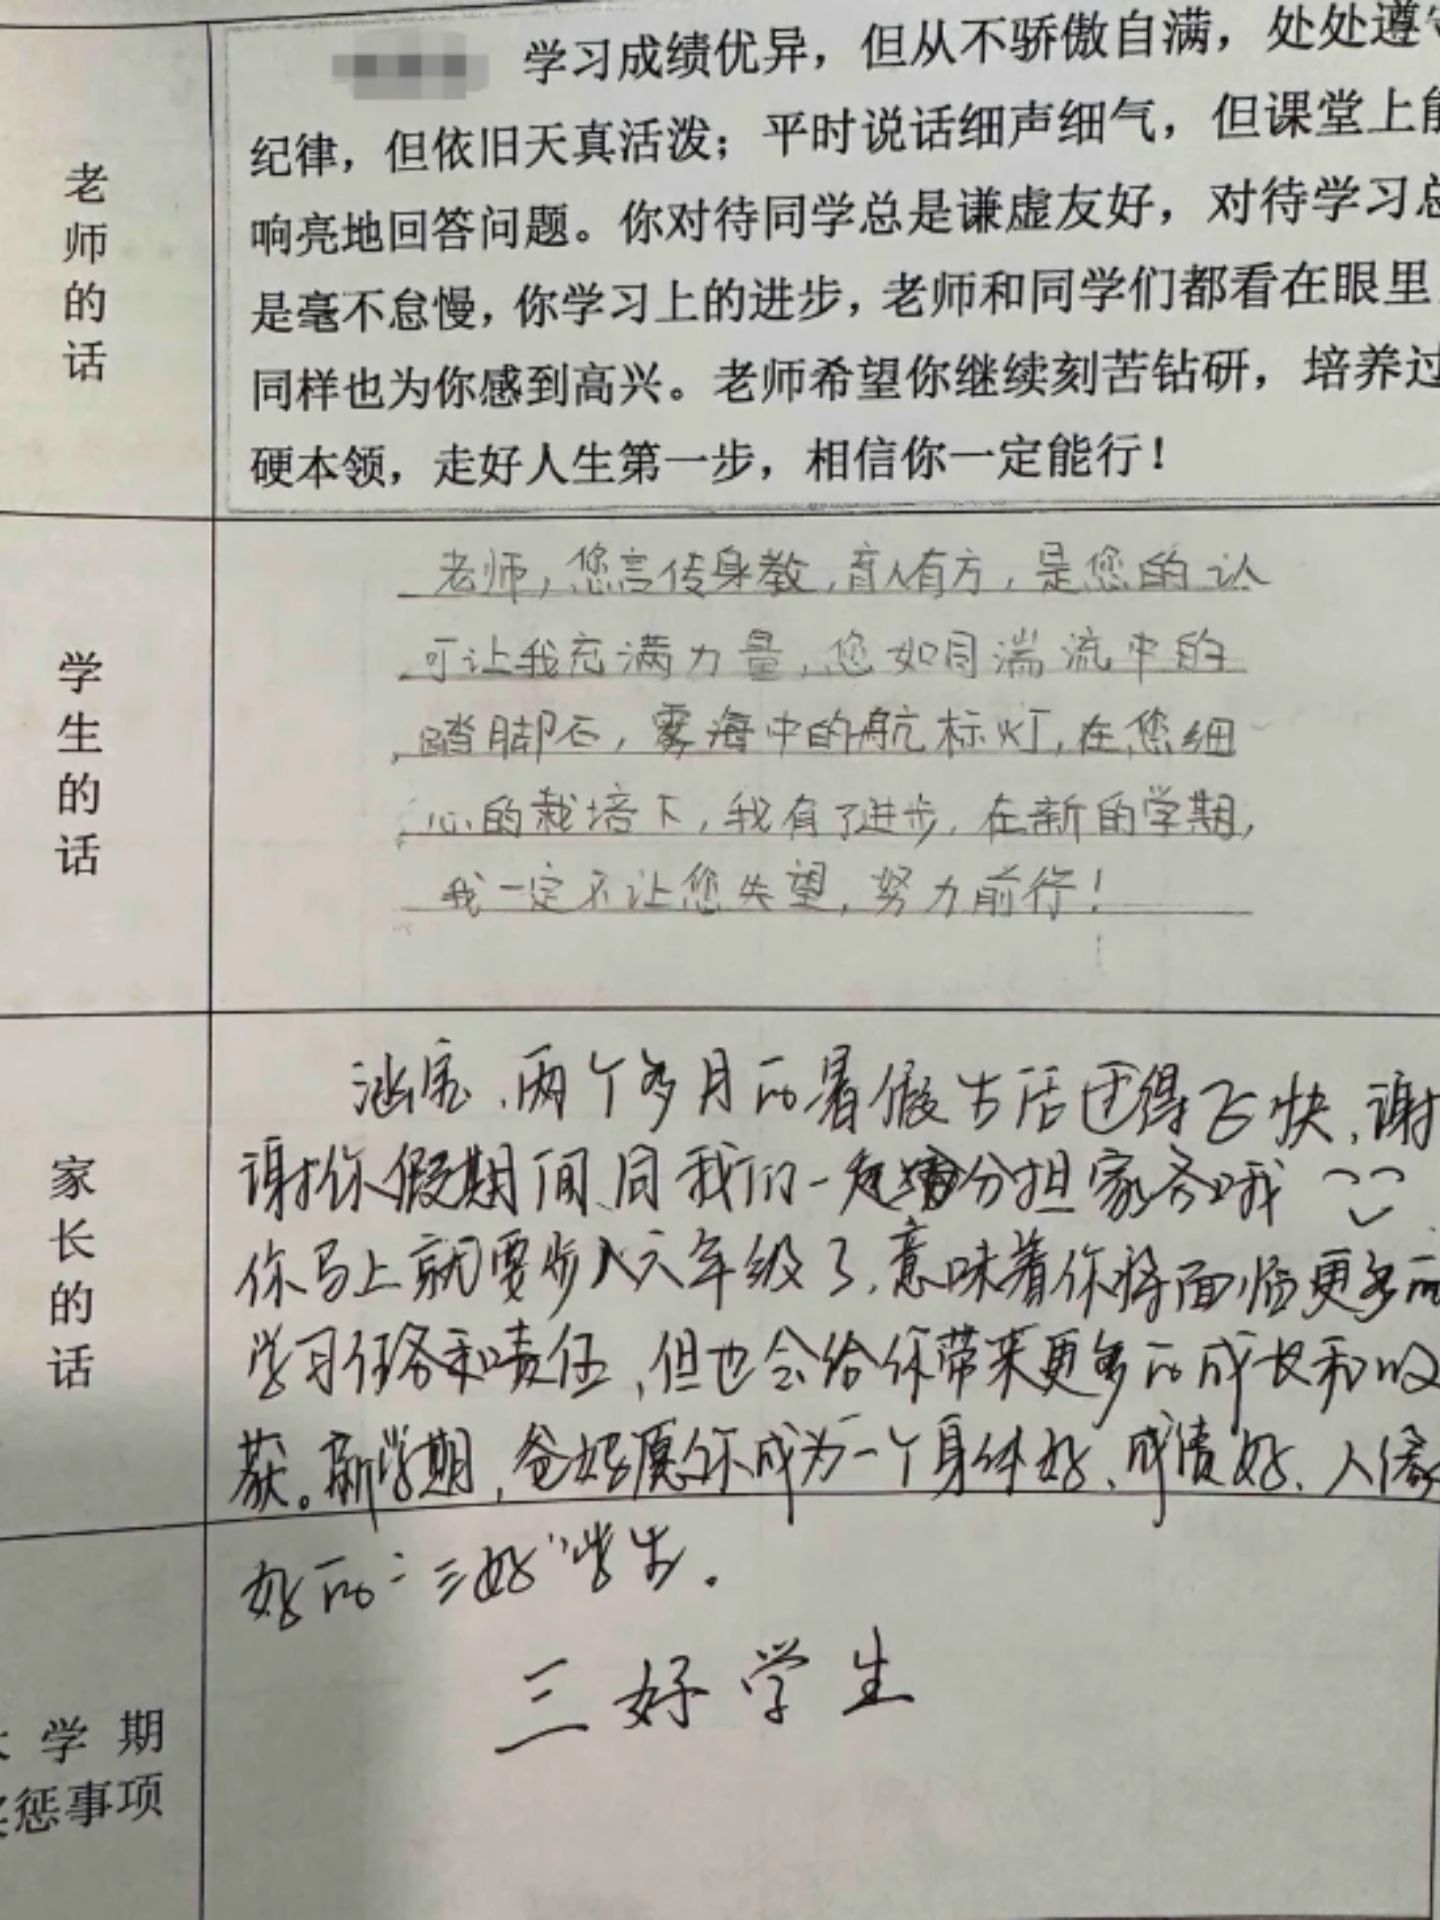 老师的话
学习成绩优异，但从不骄傲自满，处处遵
纪律，但依旧天真活泼；平时说话细声细气，但课堂上能
响亮地回答问题。你对待同学总是谦虚友好，对待学习总
是毫不怠慢，你学习上的进步，老师和同学们都看在眼里
同样也为你感到高兴。老师希望你继续刻苦钻研，培养过
硬本领，走好人生第一步，相信你一定能行！
学生的话
老师，您言传身教，育人有方，是您的认
可让我充满力量，您如同湍流中的
踏脚石，雾海中的航标灯，在您细
心的栽培下，我有了进步，在新的学期，
我一定不让您失望，努力前行！
家长的话
涵宝，两个多月的暑假生活过得飞快，谢
谢你假期间同我们一起分担家务哦
你马上就要步入六年级了，意味着你将面临更多的
学习任务和责任，但也会给你带来更多的成长和收
获。新学期，爸妈愿你成为一个身体好、成绩好、人缘
好的“三好”学生。
学期
惩事项
三好学生